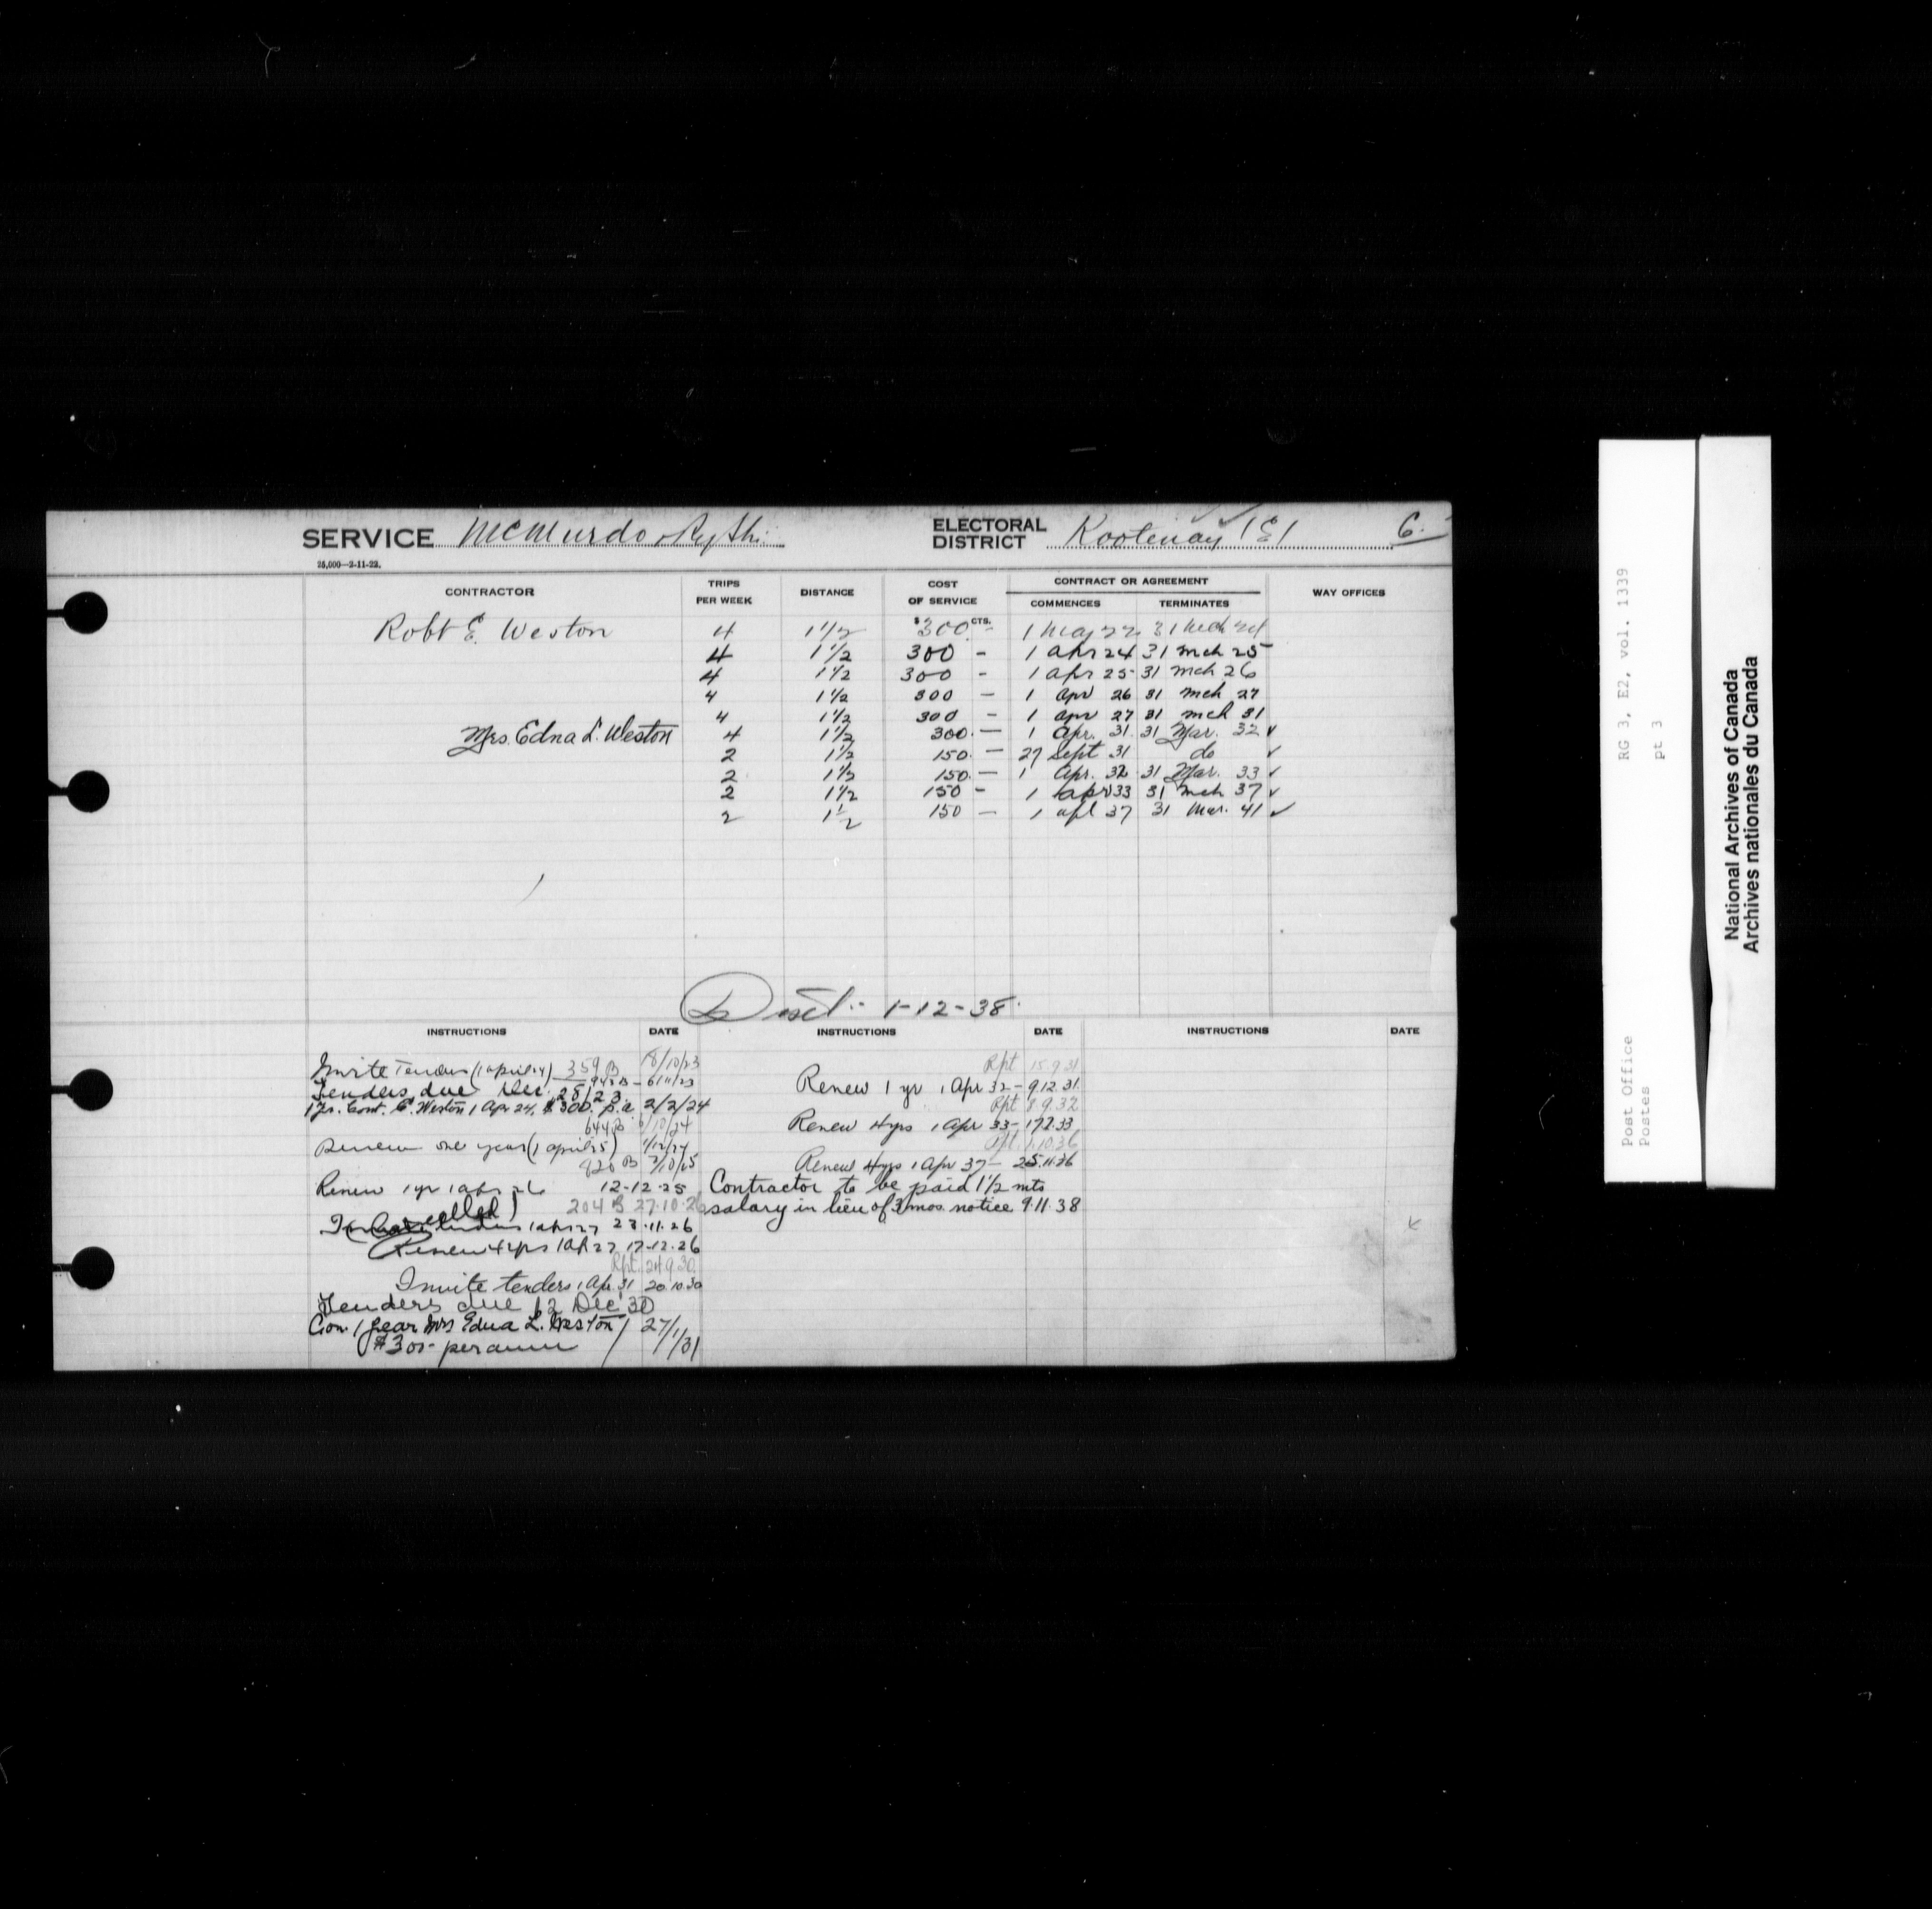 SERVICE McMurdo Ry Stn. ELECTORAL DISTRICT Kootenay (E) 6.
25,000—2-11-22.
CONTRACTOR TRIPS PER WEEK DISTANCE COST OF SERVICE CONTRACT OR AGREEMENT COMMENCES TERMINATES WAY OFFICES
$ CTS.
Robt E. Weston 4 1 1/2 300 - 1 May 22 31 Mch 24
4 1 1/2 300 - 1 apr 24 31 mch 25
4 1 1/2 300 - 1 apr 25 31 mch 26
4 1 1/2 300 - 1 apr 26 31 mch 27
4 1 1/2 300 - 1 apr 27 31 mch 31
Mrs. Edna L. Weston 4 1 1/2 300. — 1 Apr. 31. 31 Mar. 32 ✓
2 1 1/2 150. — 27 Sept 31 do ✓
2 1 1/2 150. — 1 Apr. 32 31 Mar. 33 ✓
2 1 1/2 150 - 1 apr 33 31 mch 37 ✓
2 1 1/2 150 — 1 apl 37 31 Mar. 41 ✓
Disct. 1-12-38.
INSTRUCTIONS DATE INSTRUCTIONS DATE INSTRUCTIONS DATE
Invite Tenders (1 april 24) 359 B 18/10/23
Tenders due Dec. 28/23 942 B - 6/11/23
1 Yr. Cont. E. Weston 1 Apr 24. $300. p.a. 2/2/24
644 B /10/24
Renew one year (1 april 25) 1/12/24
820 B 7/10/25
Renew 1 yr 1 apr 26 12-12-25
204 B 27-10-26
(Cancelled)
Invite tenders 1 apr 27 23-11-26
Renew 4 yrs 1 Ap 27 17-12-26
Rpt. 24 9 30
Invite tenders 1 Apr. 31 20 10 30
Tenders due 12 Dec 30
Con. 1 year Mrs Edna L. Weston 27/1/31
$300- per annum
Rpt 15 9 31
Renew 1 yr 1 Apr 32 - 9.12.31
Rpt 8 9.32
Renew 4 yrs 1 Apr 33 - 17.2.33
Rpt 1.10.36
Renew 4 yrs 1 Apr 37 - 25.11.36
Contractor to be paid 1 1/2 mts
salary in lieu of 3 mos. notice 9.11.38
Post Office RG 3, E2, vol. 1339
Postes pt 3
National Archives of Canada
Archives nationales du Canada